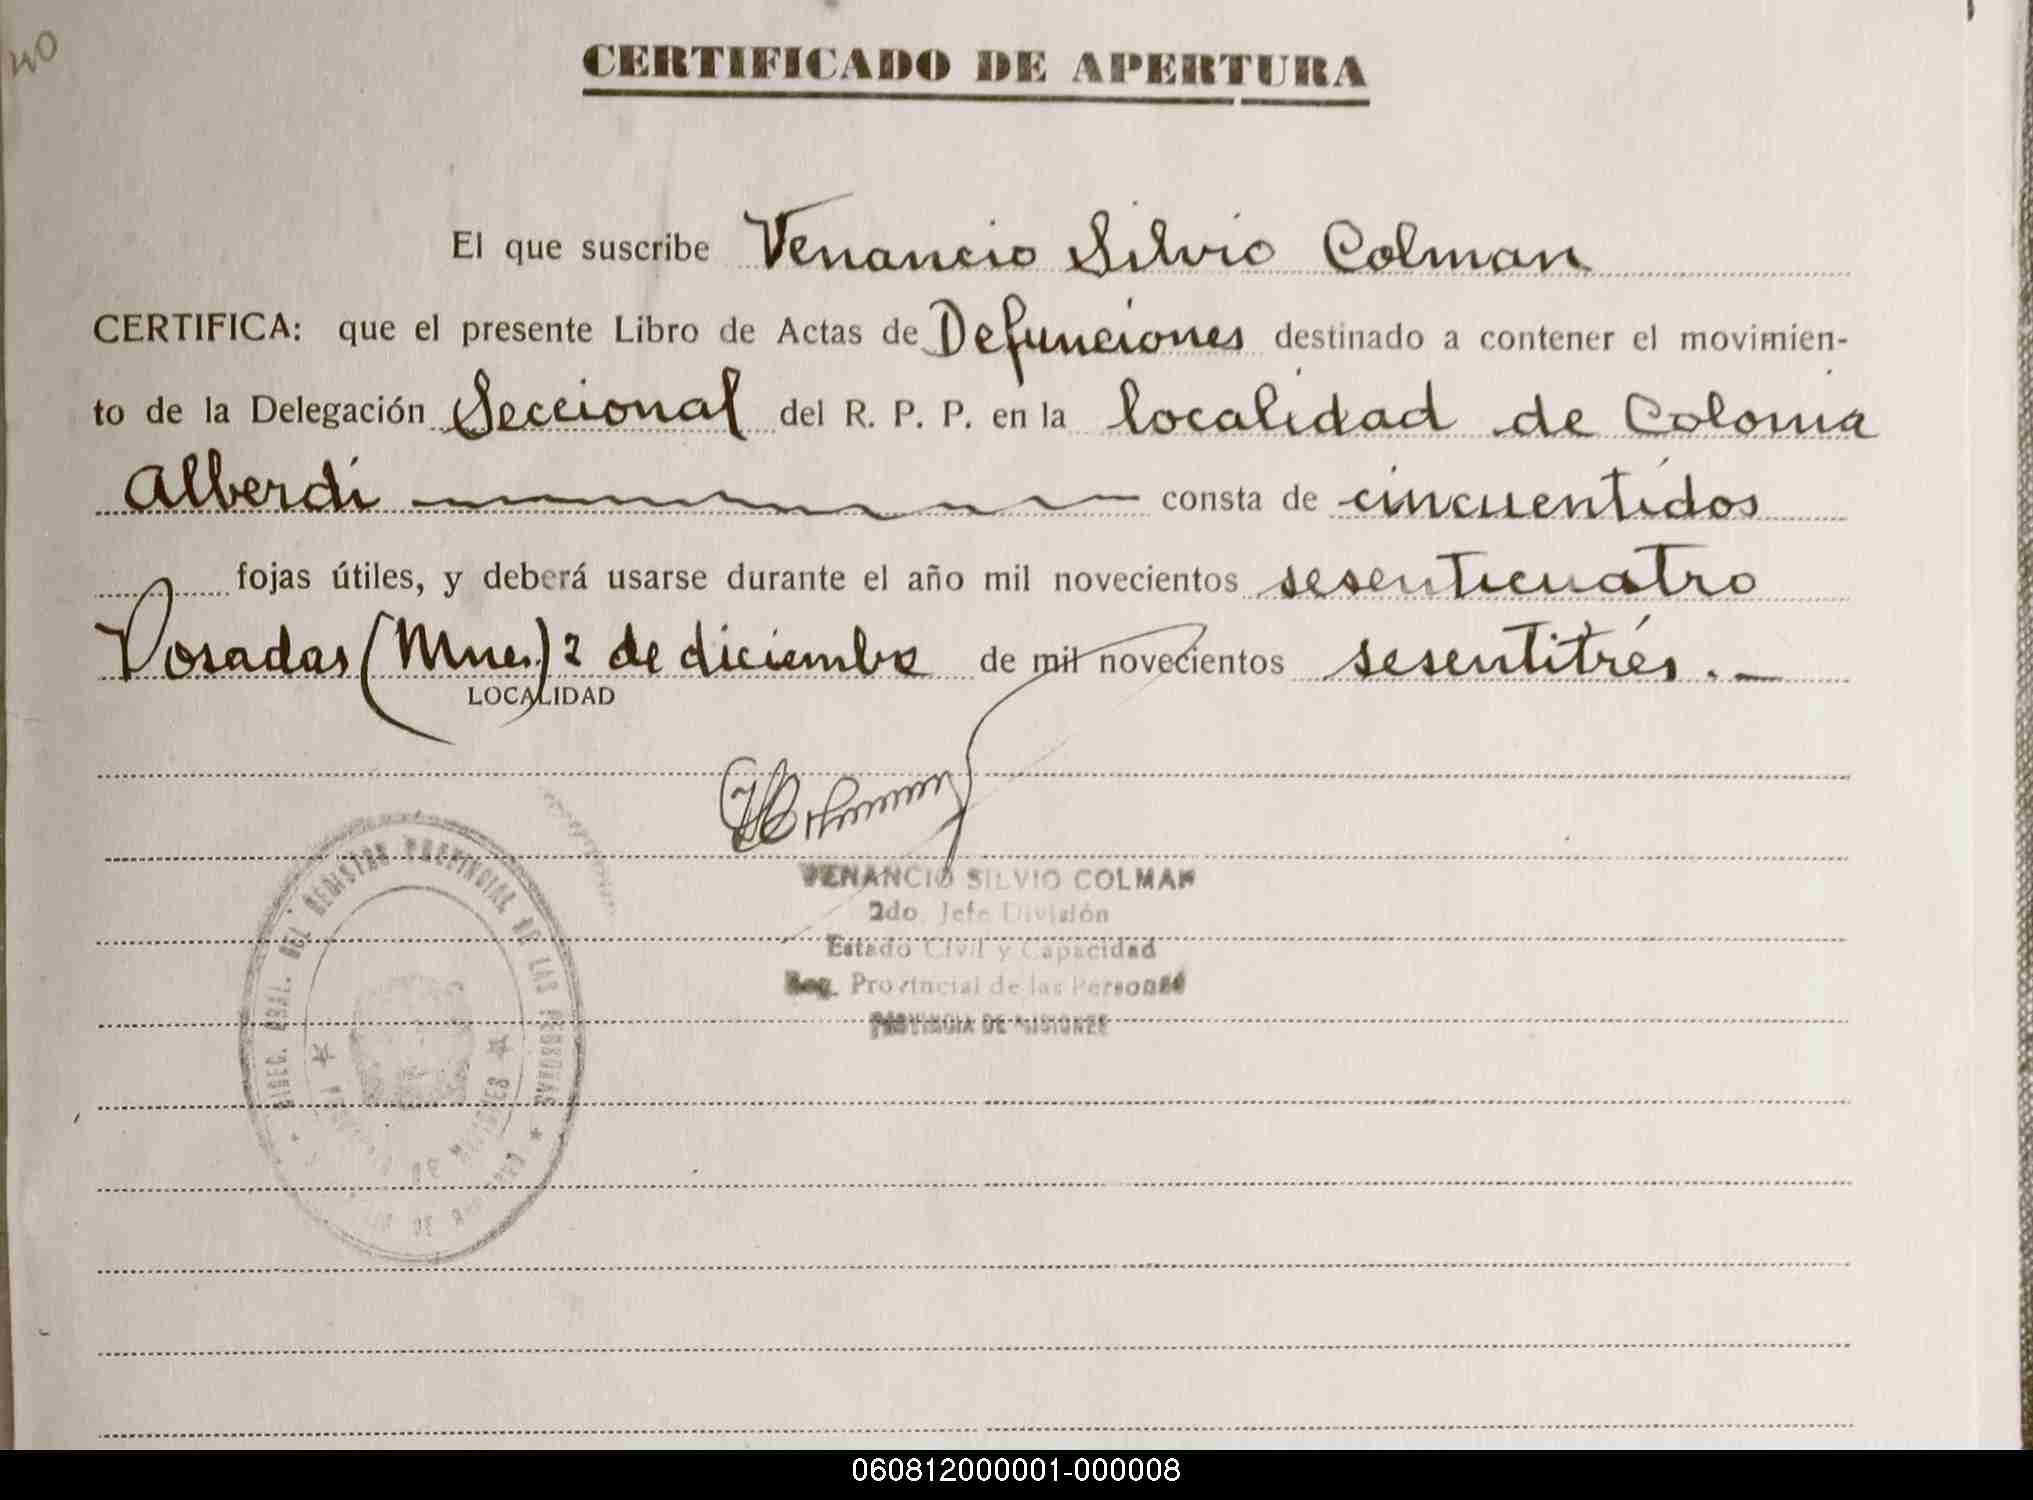 40
CERTIFICADO DE APERTURA
El que suscribe Venancio Silvio Colman
CERTIFICA: que el presente Libro de Actas de Defunciones destinado a contener el movimien-
to de la Delegación Seccional del R. P. P. en la localidad de Colonia
Alberdi consta de cincuentidos
fojas útiles, y deberá usarse durante el año mil novecientos sesenticuatro
Posadas (Mnes.) 2 de diciembre de mil novecientos sesentitrés. -
LOCALIDAD
VENANCIO SILVIO COLMAN
2do. Jefe División
Estado Civil y Capacidad
Reg. Provincial de las Personas
PROVINCIA DE MISIONES
DIREC. GRAL. DEL REGISTRO PROVINCIAL DE LAS PERSONAS
DE MISIONES
060812000001-000008